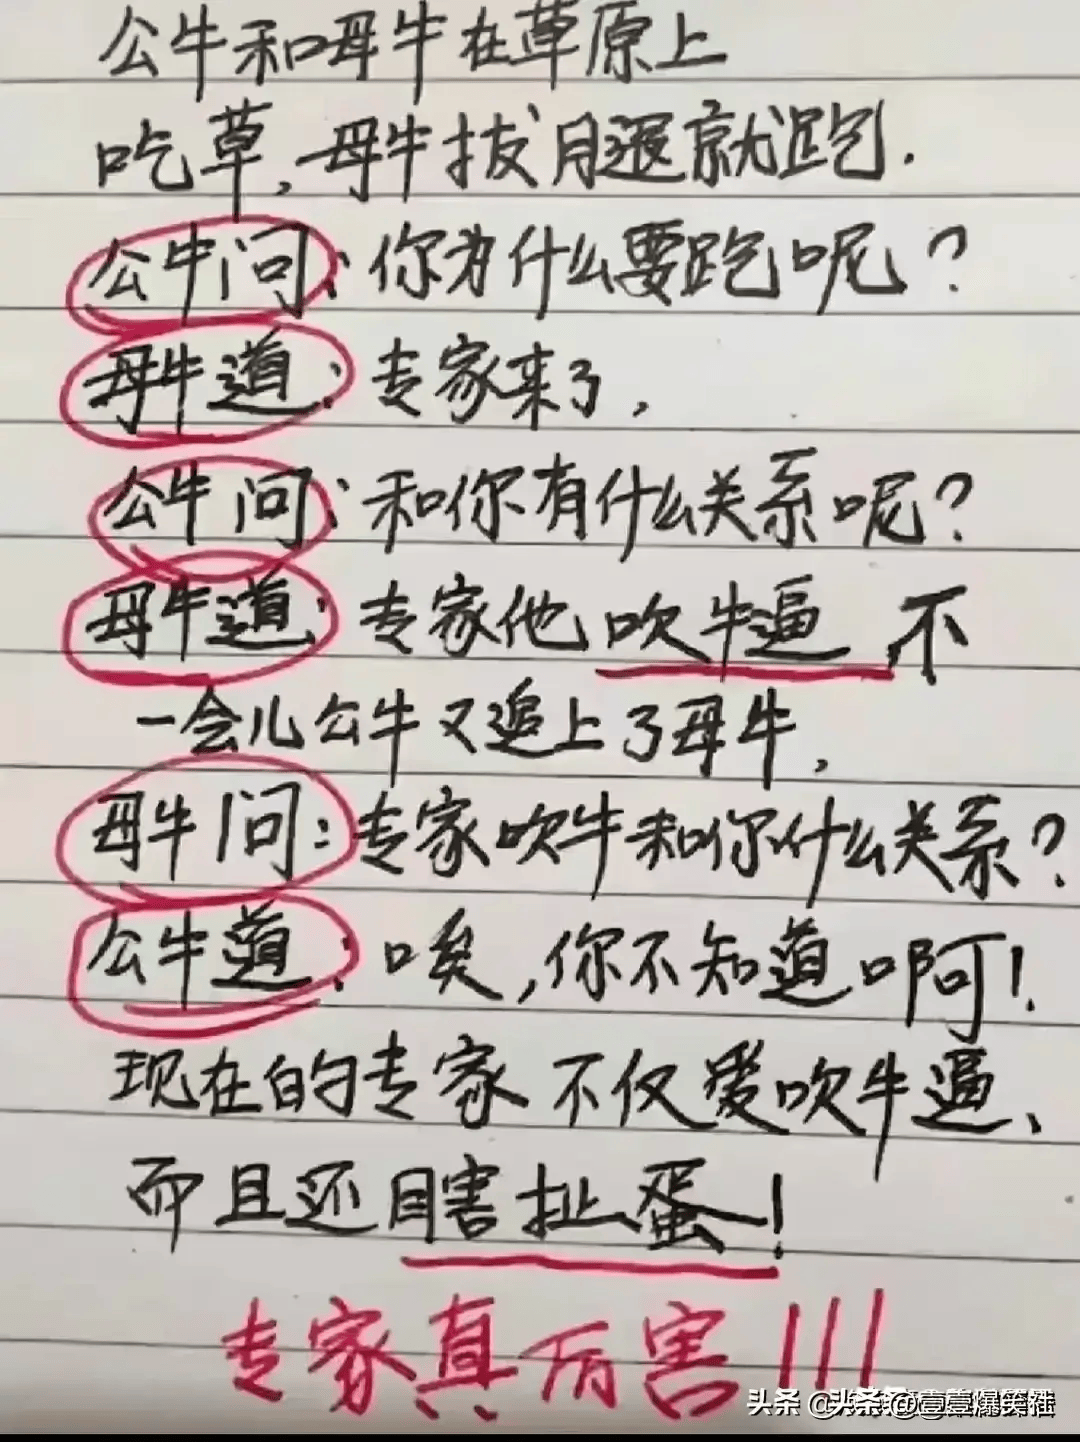 公牛和母牛在草原上
吃草,母牛拔腿就跑.
公牛问:你为什么要跑呢?
母牛道:专家来了,
公牛问:和你有什么关系呢?
母牛道:专家他吹牛逼,不
一会儿公牛又追上了母牛,
母牛问:专家吹牛和你什么关系?
公牛道:唉,你不知道啊!
现在的专家不仅爱吹牛逼、
而且还瞎扯蛋!
专家真厉害!!!
头条 @壹壹爆笑社